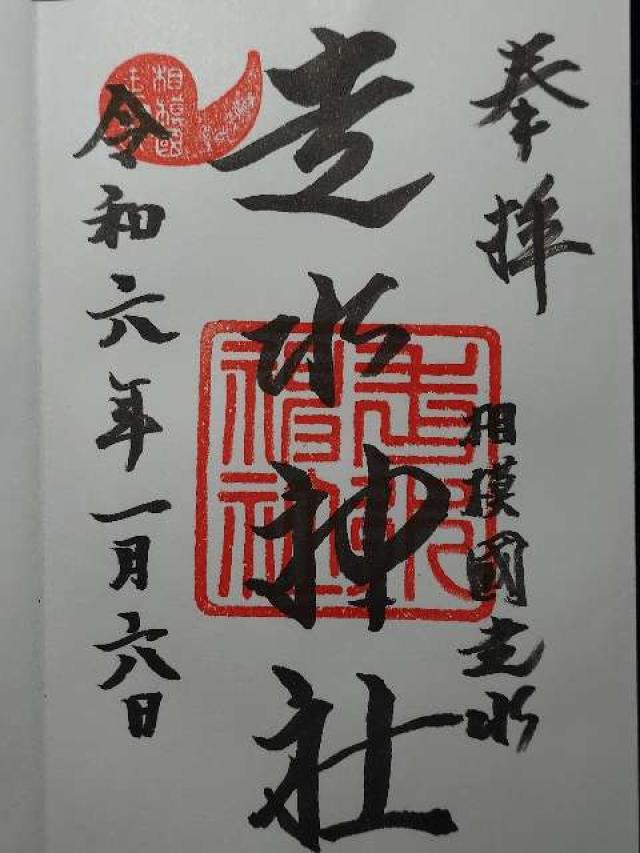 奉拝
相模國走水
走水神社
令和六年一月六日
相模國
走水神社